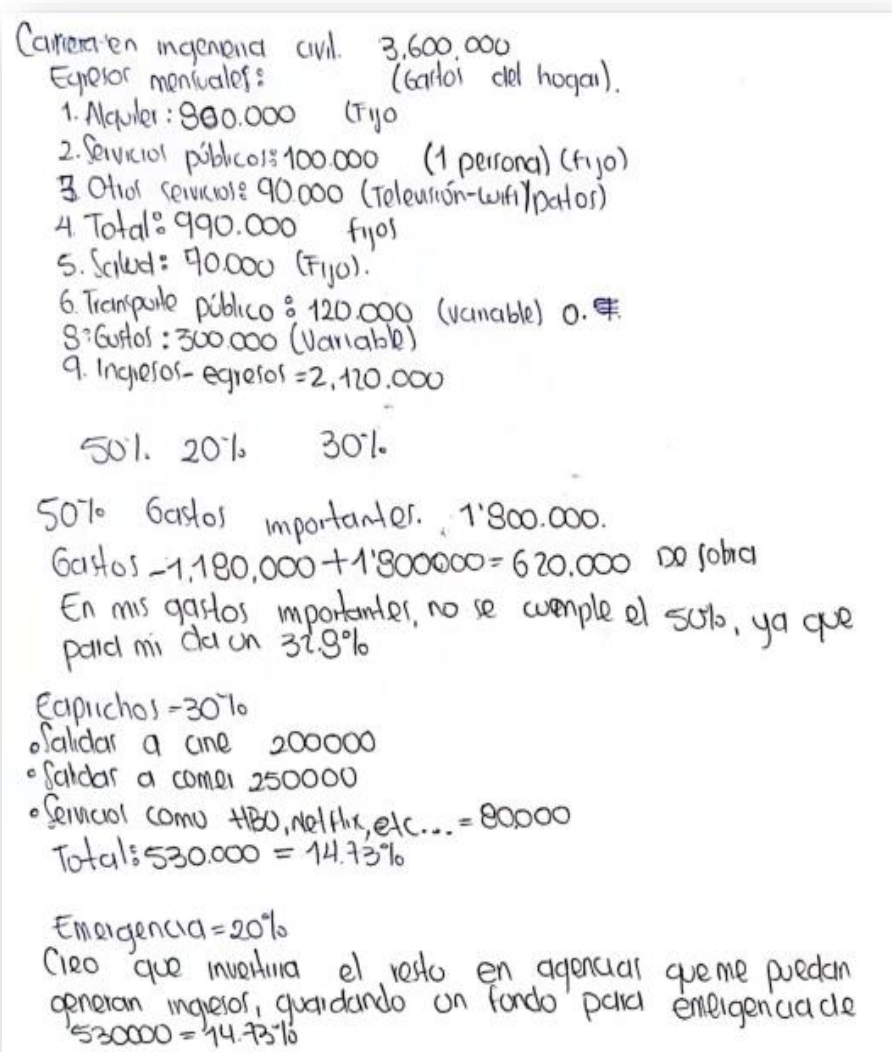 Carrera en ingeneria civil. 3,600,000
Egresos mensuales: (Gastos del hogar).
1. Alquiler: 800.000 (Fijo
2. Servicios públicos: 100.000 (1 persona) (fijo)
3 Otros servicios: 90.000 (Televisión-wifi/datos)
4 Total: 990.000 fijos
5. Salud: 70.000 (Fijo).
6. Transporte público: 120.000 (variable) 0.
8: Gustos: 300.000 (Variable)
9. Ingresos-egresos = 2,120.000
50%. 20% 30%
50% Gastos importantes. 1'800.000.
Gastos -1,180,000+1'800000= 620.000 De sobra
En mis gastos importantes, no se cumple el 50%, ya que
para mi da un 32.8%
Caprichos = 30%
• Salidas a cine 200000
• Salidas a comer 250000
• Servicios como HBO, Netflix, etc... = 80,000
Total: 530.000 = 14.73%
Emergencia = 20%
Creo que invertiria el resto en agencias que me puedan
generan ingresos, guardando un fondo para emergencia de
530000 = 14.73%